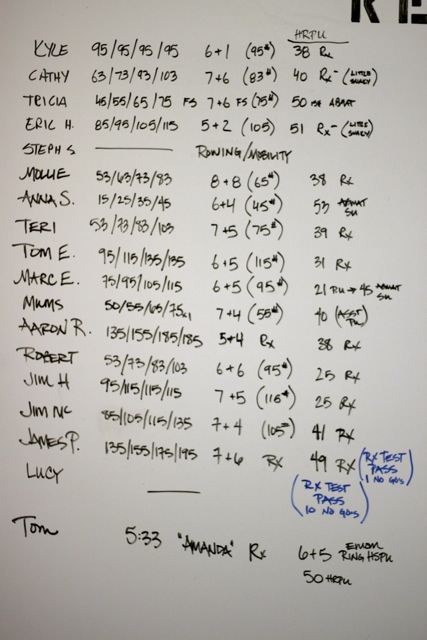 HRPU
KYLE 95/95/95/95 6+1 (95#) 38 Rx
CATHY 63/73/93/103 7+6 (83#) 40 Rx- (LITTLE SHAKY)
TRICIA 45/55/65/75 FS 7+6 FS (75#) 50 ABMAT
ERIC H. 85/95/105/115 5+2 (105) 51 Rx- (LITTLE SHAKY)
STEPH S. ROWING/MOBILITY
MOLLIE 53/63/73/83 8+8 (65#) 38 Rx
ANNA S. 15/25/35/45 6+4 (45#) 53 ABMAT SU
TERI 53/73/83/103 7+5 (75#) 39 Rx
TOM E. 95/115/135/135 6+5 (115#) 31 Rx
MARC E. 75/95/105/115 6+5 (95#) 21 PU → 45 ABMAT SU
MIMS 50/55/65/75x1 7+4 (55#) 40 (ASST PU)
AARON R. 135/155/185/185 5+4 Rx 38 Rx
ROBERT 53/73/83/103 6+6 (95#) 25 Rx
JIM H 95/115/115/115 7+5 (115#) 25 Rx
JIM MC 85/105/115/135 7+4 (105#) 41 Rx
JAMES P. 135/155/175/195 7+6 Rx 49 Rx (RX TEST PASS 1 NO GO'S)
LUCY (RX TEST PASS 10 NO GO'S)
Tom 5:33 "AMANDA" Rx 6+5 EMOM RING HSPU
50 HRPU